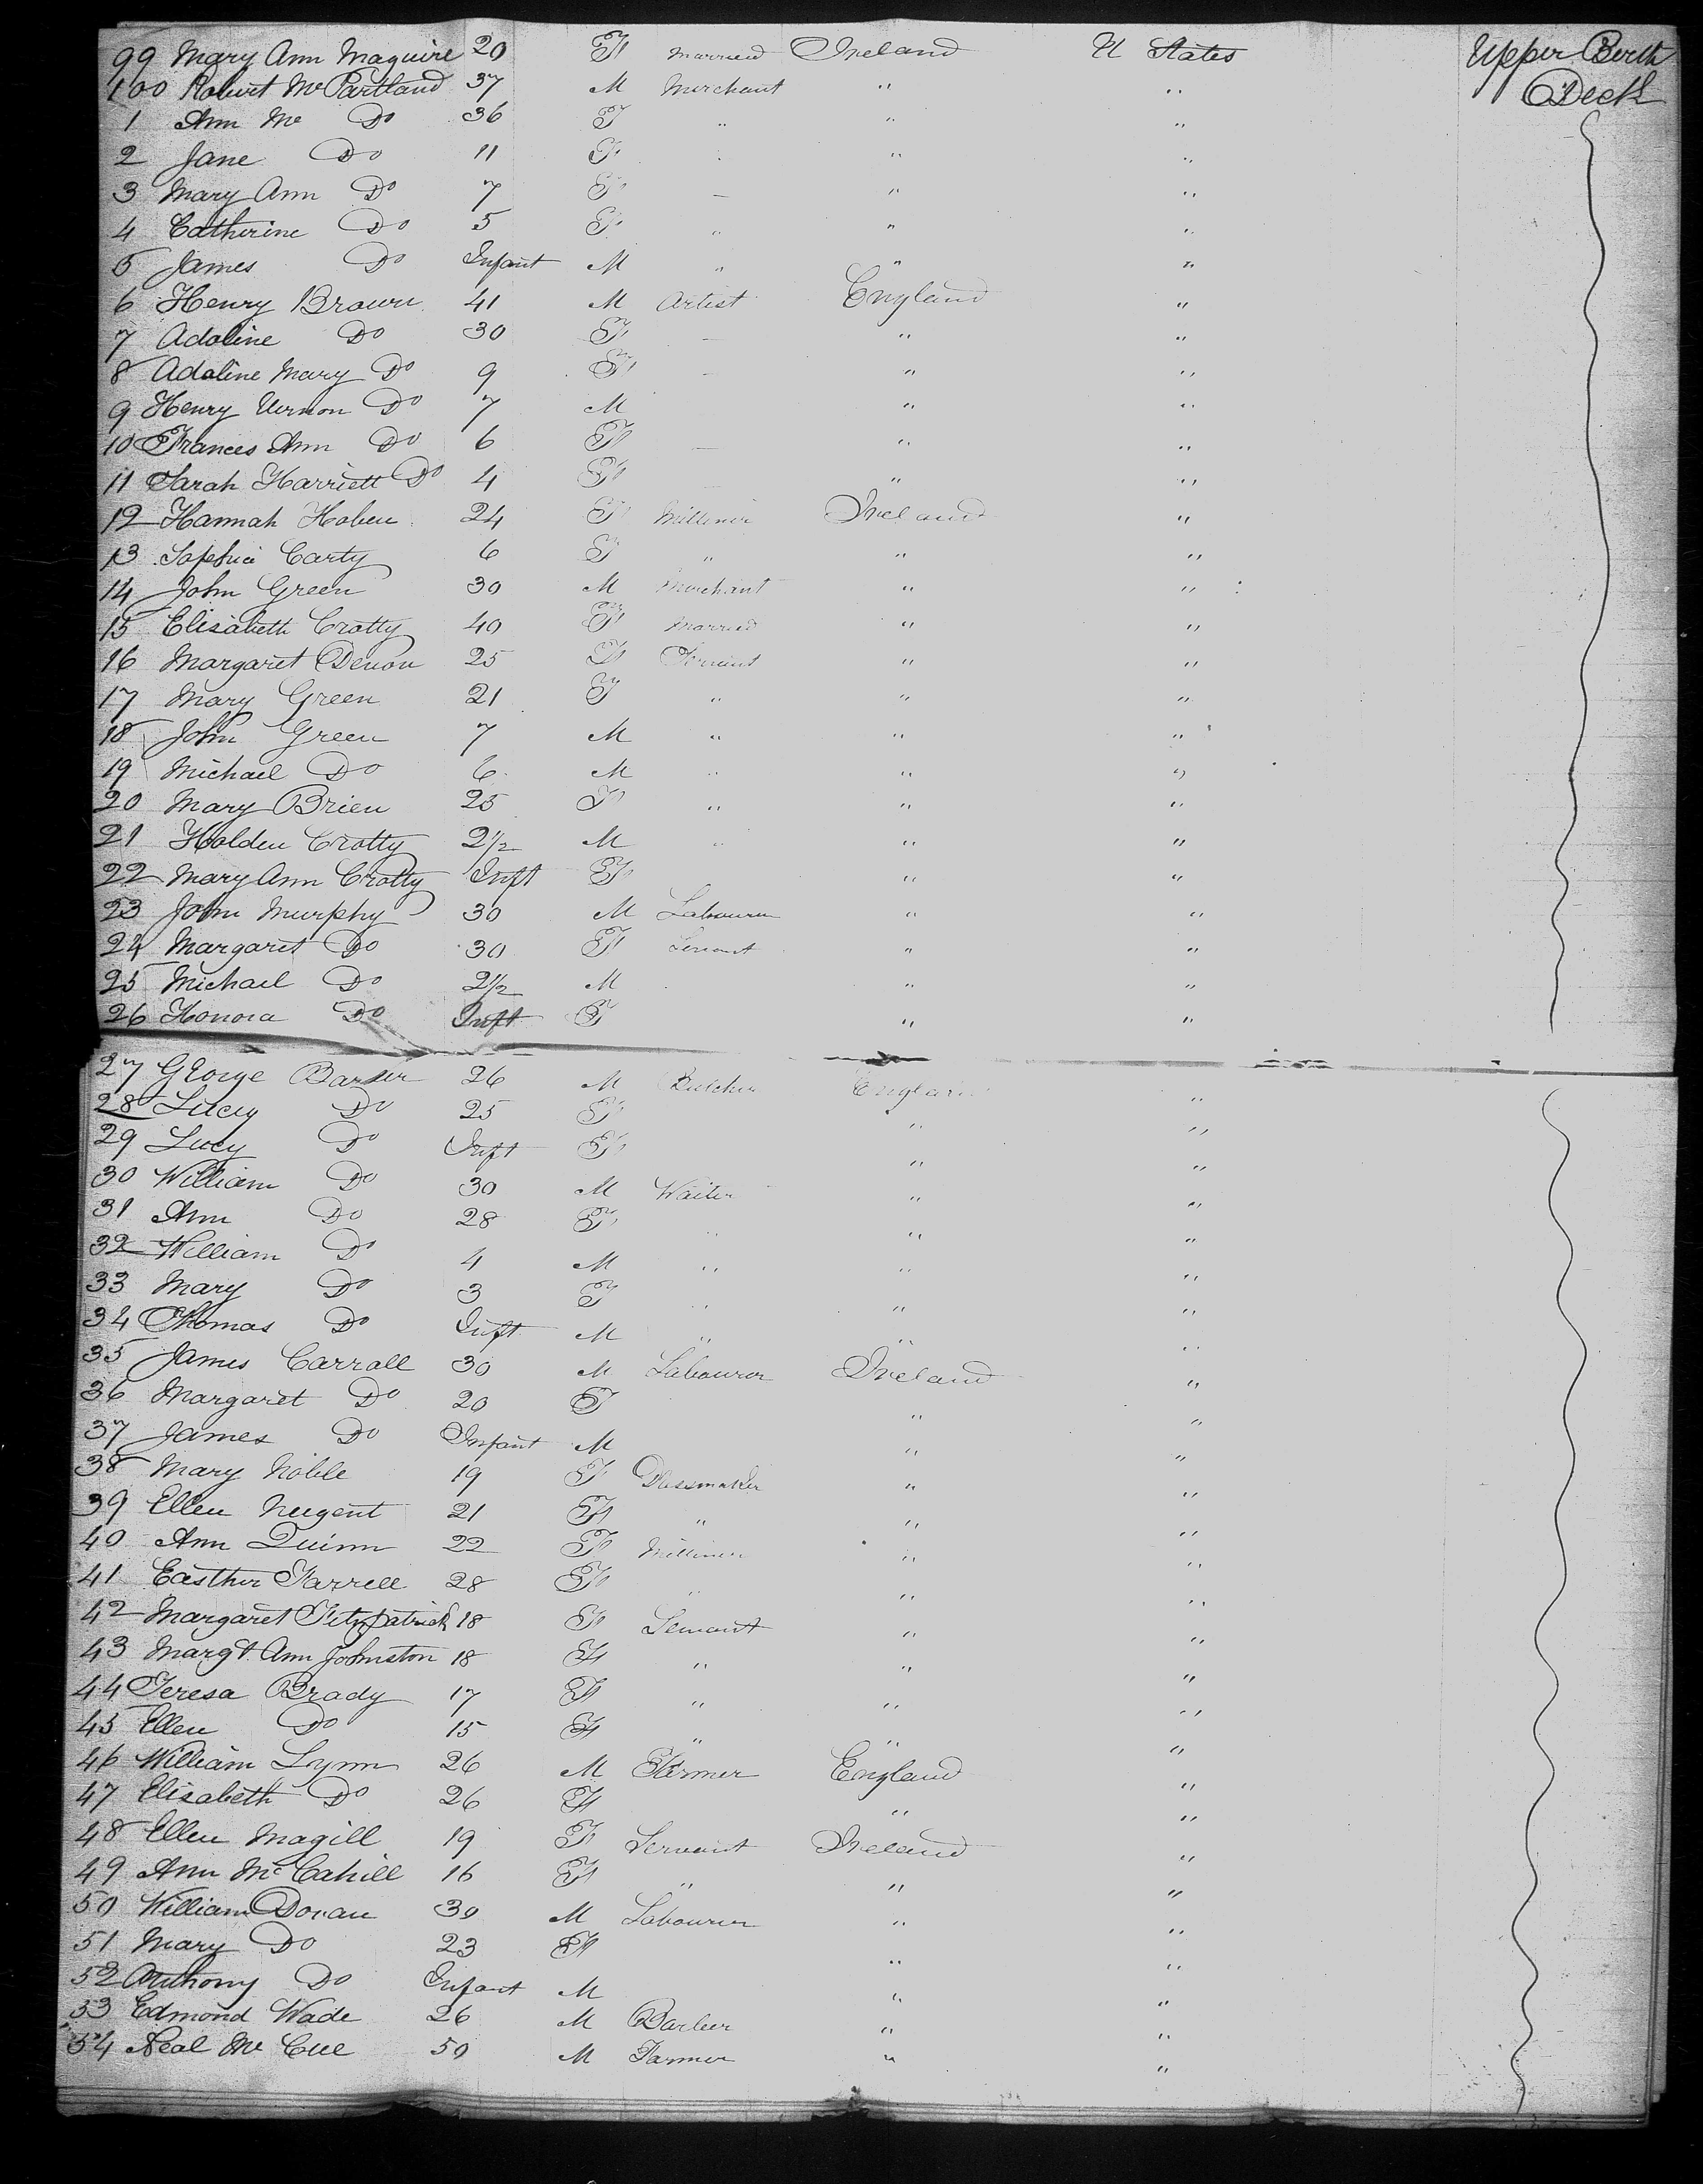 99 Mary Ann Maguire 20 F married Ireland U States Upper Berth
100 Robert McPartland 37 M Merchant " " Deck
1 Ann Mc Do 36 F " " "
2 Jane Do 11 F " "
3 Mary Ann Do 7 F — " "
4 Catherine Do 5 F " " "
5 James Do Infant M " " "
6 Henry Brown 41 M Artist England "
7 Adaline Do 30 F — " "
8 Adaline Mary Do 9 F — " "
9 Henry Vernon Do 7 M " "
10 Frances Ann Do 6 F — " "
11 Sarah Harriett Do 4 F " "
12 Hannah Hoben 24 F Milliner Ireland "
13 Sophia Carty 6 F " " "
14 John Green 30 M Merchant " "
15 Elisabeth Crotty 40 F Married " "
16 Margaret Devon 25 F Servant " "
17 Mary Green 21 F " " "
18 John Green 7 M " " "
19 Michael Do 6 M " " "
20 Mary Brien 25 F " " "
21 Holden Crotty 2½ M " " "
22 Mary Ann Crotty Inft F " "
23 John Murphy 30 M Labourer " "
24 Margaret Do 30 F Servant " "
25 Michael Do 2½ M " "
26 Honora Do Inft F " "
27 George 26 M Butcher England "
28 Lucy Do 25 F " "
29 Lucy Do Inft F " "
30 William Do 30 M Waiter " "
31 Ann Do 28 F " " "
32 William Do 4 M " " "
33 Mary Do 3 F " " "
34 Thomas Do Inft M " " "
35 James Carroll 30 M Labourer Ireland "
36 Margaret Do 20 F " "
37 James Do Infant M " "
38 Mary Noble 19 F Dressmaker " "
39 Ellen Nugent 21 F " " "
40 Ann Quinn 22 F Milliner " "
41 Easther Farrell 28 F " " "
42 Margaret Fitzpatrick 18 F Servant " "
43 Margt Ann Johnston 18 F " " "
44 Teresa Brady 17 F " " "
45 Ellen Do 15 F " " "
46 William Lynn 26 M Farmer England "
47 Elisabeth Do 26 F " "
48 Ellen Magill 19 F Servant Ireland "
49 Ann McCahill 16 F " " "
50 William Doran 30 M Labourer " "
51 Mary Do 23 F " "
52 Anthony Do Infant M " "
53 Edmond Wade 26 M Barber " "
54 Neal McCue 50 M Farmer " "